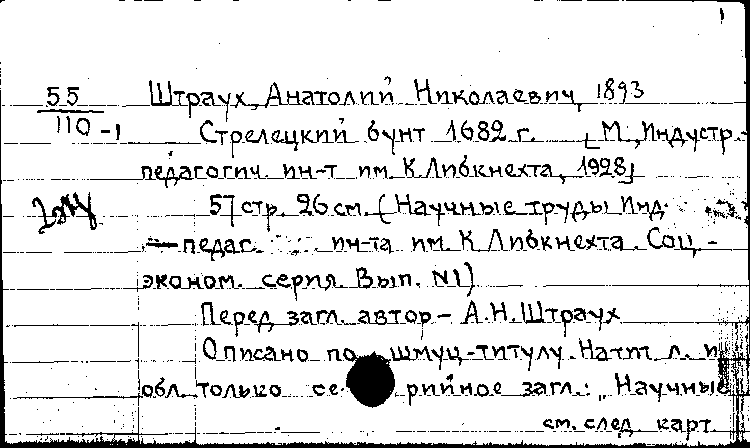 1
55
110 -1
Штраух, Анатолий Николаевич, 1893
Стрелецкий бунт 1682 г. [М., Индустр.-
педагогич. ин-т им. К. Либкнехта, 1928]
57 стр. 26 см. (Научные труды Инд.
-педаг. ин-та им. К. Либкнехта. Соц.-
эконом. серия. Вып. №1)
Перед загл. автор - А.Н. Штраух
Описано по шмуц-титулу. На тит. л. и
обл. только се-рийное загл.: „Научные
см. след. карт.